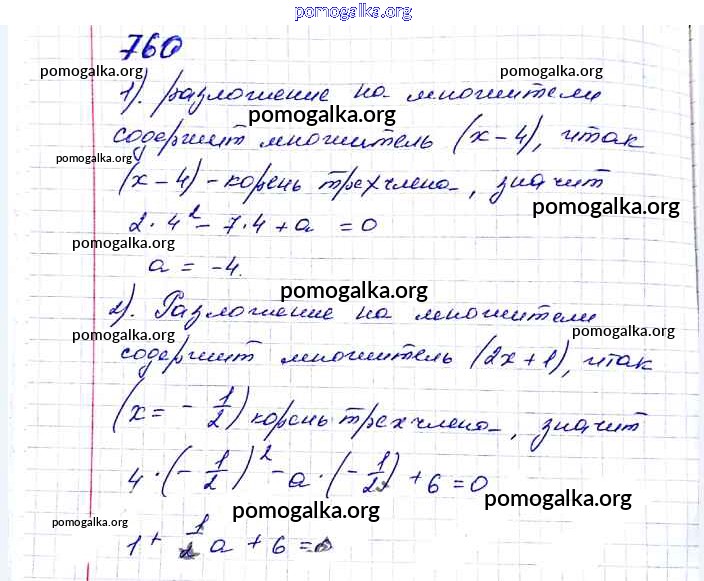 pomogalka.org
760
pomogalka.org pomogalka.org
1). разложение на множители
pomogalka.org
содержит множитель (x - 4), итак
pomogalka.org
(x - 4) - корень трехчлена, значит
pomogalka.org
2 · 4² - 7 · 4 + a = 0
pomogalka.org
a = -4.
pomogalka.org
2). Разложение на множители
pomogalka.org pomogalka.org
содержит множитель (2x + 1), итак
pomogalka.org
(x = - 1/2) корень трехчлена, значит
4 · (- 1/2)² - a · (- 1/2) + 6 = 0
pomogalka.org pomogalka.org
pomogalka.org
1 + 1/2 a + 6 = 0